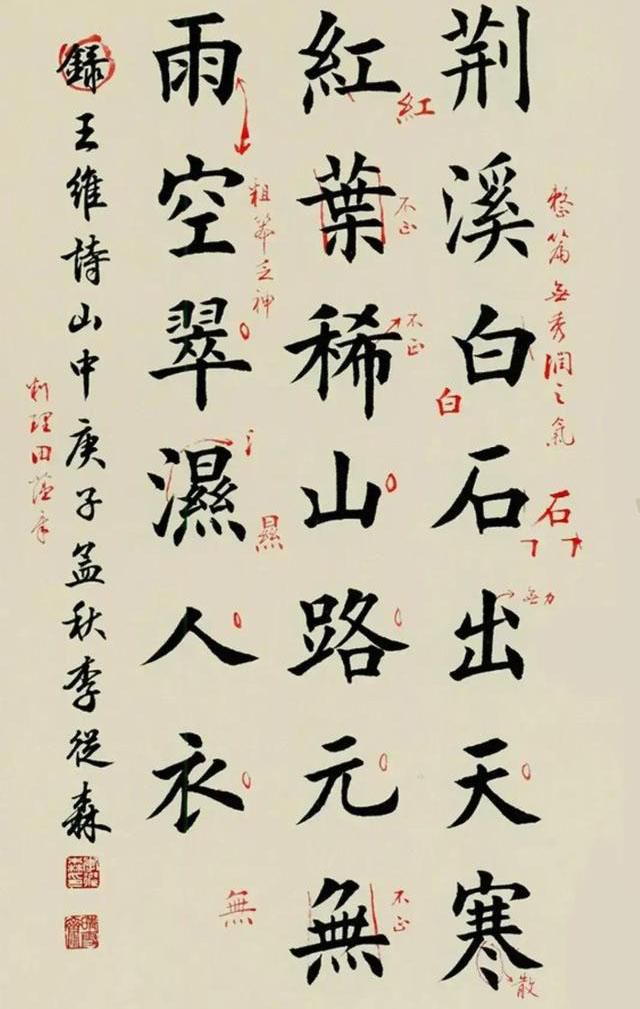 荆溪白石出天寒
紅葉稀山路元無
雨空翠濕人衣
録王維詩山中庚子孟秋李從森
整篇無秀潤之氣
白
石
無力
散
紅
不正
不正
不正
粗笨乏神
㬎
無